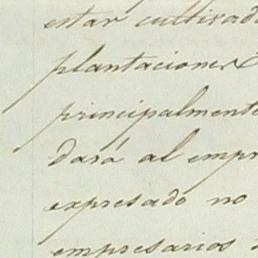 estar cultivado
plantaciones
principalmente
dará al empr
expresado no
empresarios